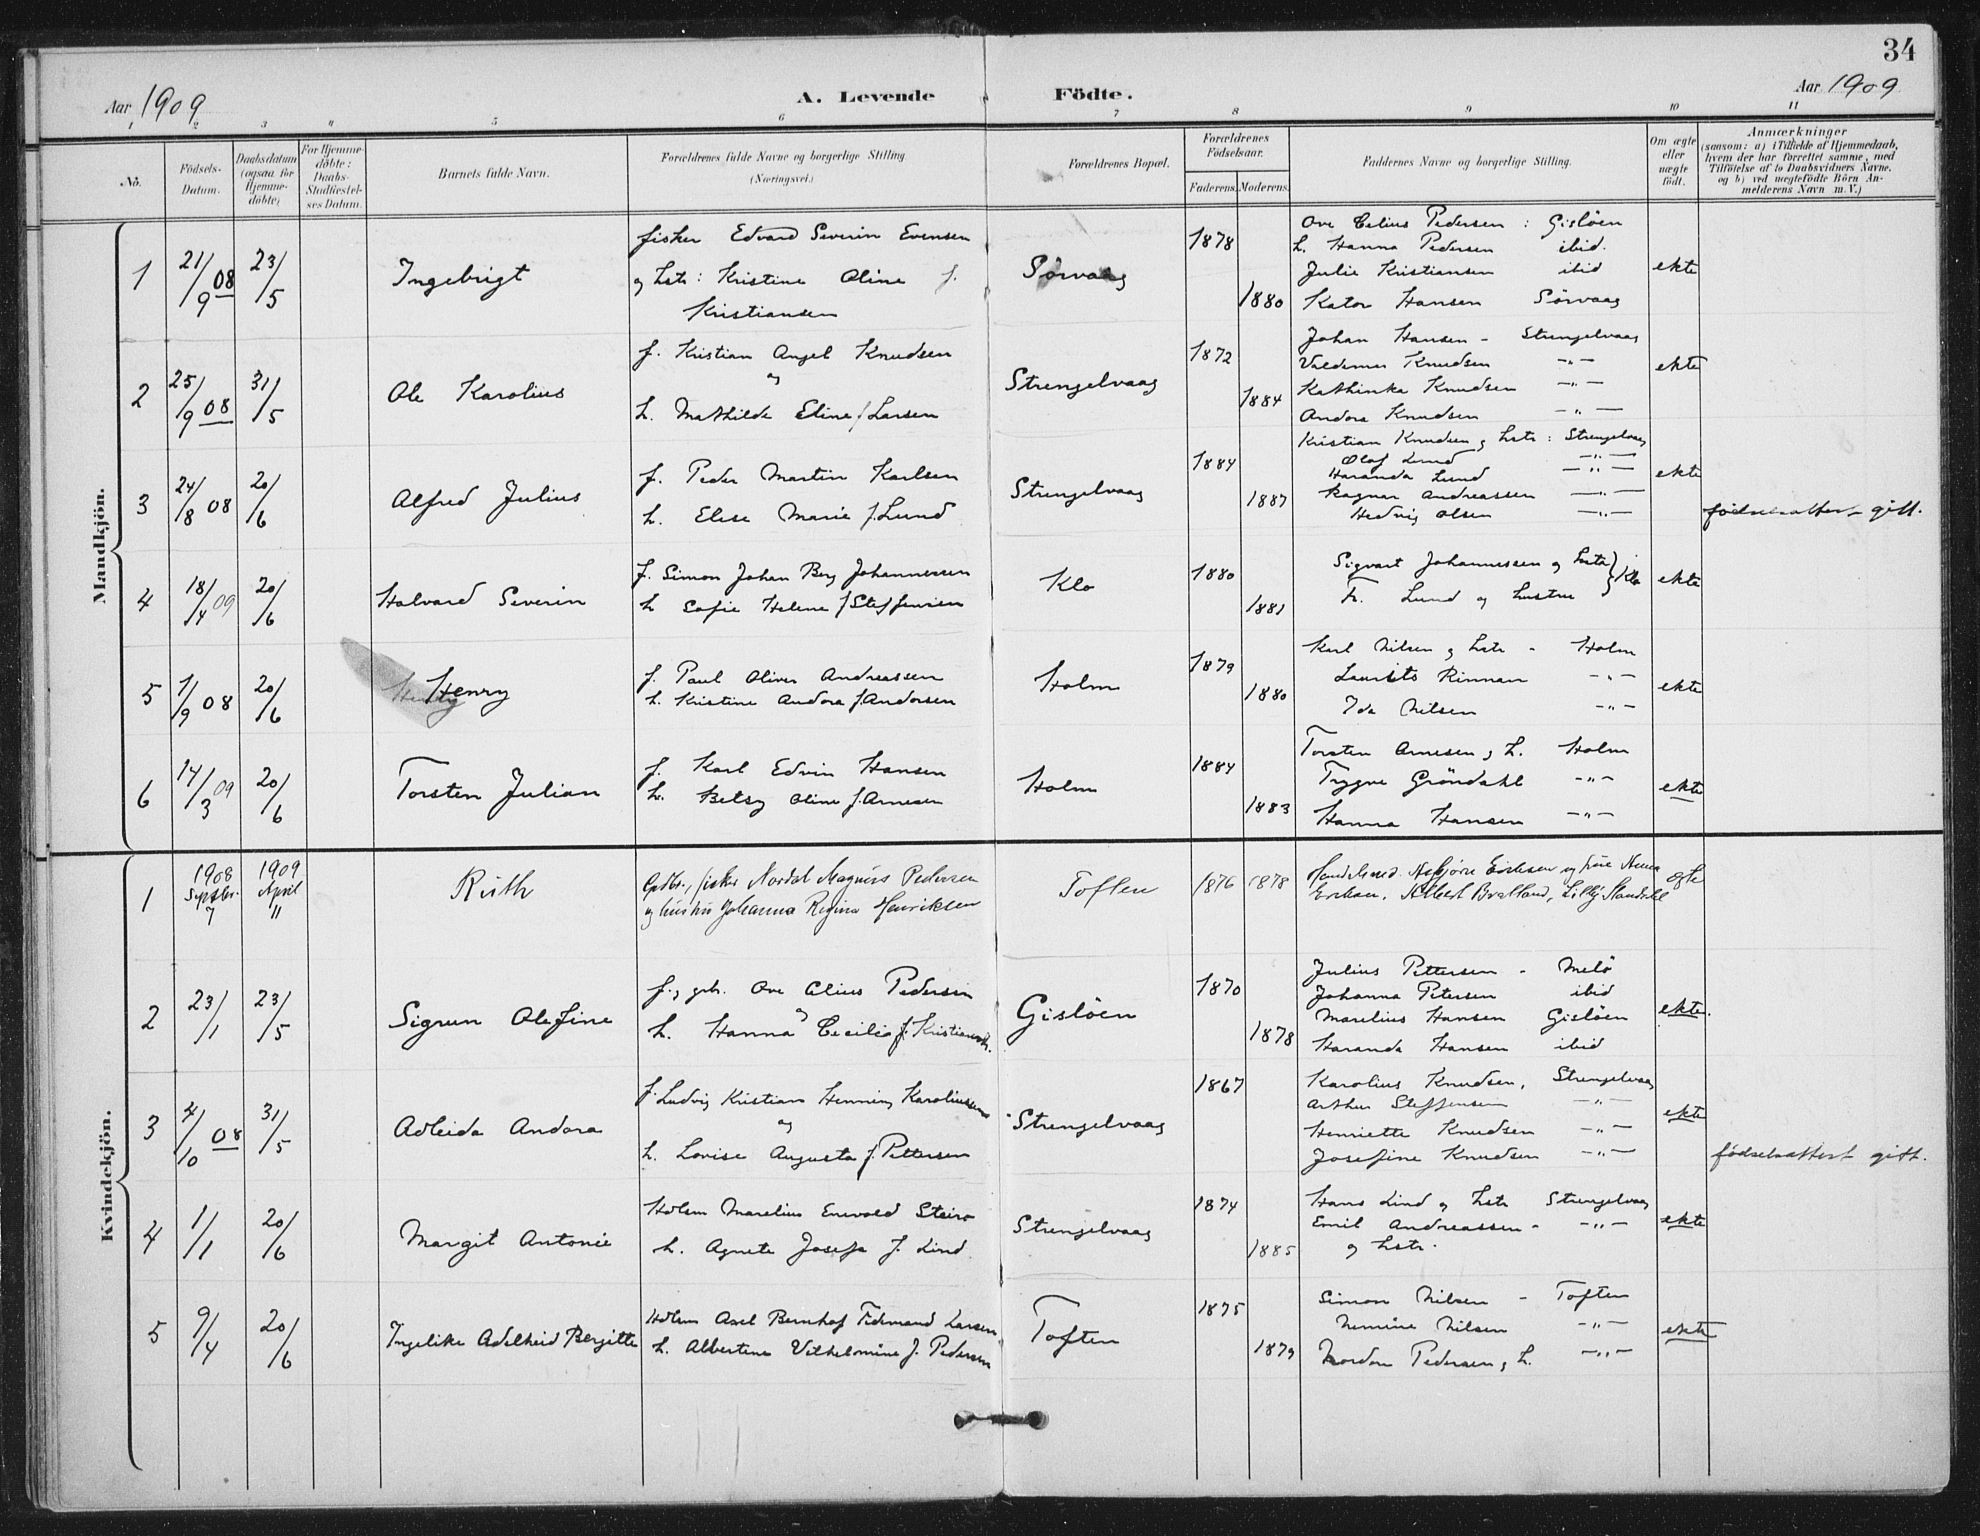 34
Aar 1909
A. Levende Födte.
Aar 1909
1 2 3 4 5 6 7 8 9 10 11
No.
Födsels-Datum.
Daabsdatum (ogsaa for Hjemme-döbte)
For Hjemme-döbte: Daabs-Stadfæstel-ses Datum.
Barnets fulde Navn.
Forældrenes fulde Navne og borgerlige Stilling (Næringsvei.)
Forældrenes Bopæl.
Forældrenes Födselsaar.
Faderens. Moderens.
Faddernes Navne og borgerlige Stilling.
Om ægte eller uægte födt.
Anmærkninger
(saasom: a) i Tilfælde af Hjemmedaab, hvem der har forrettet samme, med Tilföielse af to Daabsvidners Navne, og b) ved uægtefödte Börn An-melderens Navn m. V.)
Mandkjön.
1 21/9 08 23/5 Ingebrigt
fisker Edvard Severin Evensen
og Hstr: Kristine Oline f.
Kristiansen
Sörvaag 1878 1880
Ove Celius Pedersen : Gislöen
h. Hanna Pedersen ibid.
Julie Kristiansen ibid
Kator Hansen Sörvaag
ekte
2 25/9 08 31/5 Ole Karolius
f. Kristian Angel Knudsen
og
h. Mathilde Eline f. Larsen
Strengelvaag 1872 1884
Johan Hansen - Strengelvaag
Valdemar Knudsen -"-
Kathinka Knudsen -"-
Andora Knudsen -"-
ekte
3 24/8 08 20/6 Alfred Julius
f. Peder Martin Karlsen
h. Elise Marie f. Lund
Strengelvaag 1884 1887
Kristian Knudsen og hstr : Strengelvaag
Olaf Lund -"-
Haranda Lund -"-
Ragnar Andreassen -"-
Hedvig Olsen -"-
ekte
fødselsattest gitt.
4 18/4 09 20/6 Halvard Severin
f. Simon Johan Berg Johannessen
h. Sofie Helene f. Steffensen
Klo 1880 1881
Sigvart Johannessen og hstr
Fr. Lund og hustru
Klo
ekte
5 1/9 08 20/6 Henry
f. Paul Oliver Andreassen
h. Kristine Andora f. Andorsen
Holm 1879 1880
Karl Nilsen og hstr - Holm
Laurits Rinnan -"-
Ida Nilsen -"-
ekte
6 14/3 09 20/6 Torsten Julian
f. Karl Edvin Hansen
h. Betsy Oline f. Arnesen
Holm 1884 1883
Torsten Arnesen og h. Holm
Trygve Gröndahl -"-
Hanna Hansen -"-
ekte
Kvindekjön.
1 1908 Septbr. 7 1909 April 11 Ruth
Gpdbr., fisker Nordal Magnus Pedersen
og hustru Johanna Regina Henriksen
Toften 1876 1878
Handelsmd. Asbjörn Eriksen og frue Anna
Eriksen, Albert Brattland,
ægte
2 23/1 23/5 Sigrun Olefine
f. og grb. Ove Celius Pedersen
og
h. Hanna Cecilie f. Kristiansdtr.
Gislöen 1870 1878
Julius Pettersen - Melö
Johanna Petersen ibid
Marelius Hansen Gislöen
Haranda Hansen ibid
ekte.
3 4/10 08 31/5 Adleida Andora
f. Ludvig Kristian Henning Karoliussen
og
h. Lovise Augusta f. Pettersen
Strengelvaag 1867
Karolius Knudsen, Strengelvaag
Arthur Steffensen -"-
Henriette Knudsen -"-
Josefine Knudsen -"-
ekte
fødselsattest gitt.
4 1/1 20/6 Margit Antonie
Marelius Enevold Steiro
h. Agnete Josefa f. Lind
Strengelvaag 1874 1885
Hans Lind og hstr Strengelvaag
Emil Andreassen - -"-
og hstr.
ekte
5 9/4 20/6 Ingelike Adelheid Bergitte
Axel Bernhof Fidemand Larsen
h. Albertine Vilhelmine f. Pedersen
Toften 1875 1879
Simon Nilsen - Toften
Nilsen -"-
Pedersen og h. -"-
ekte